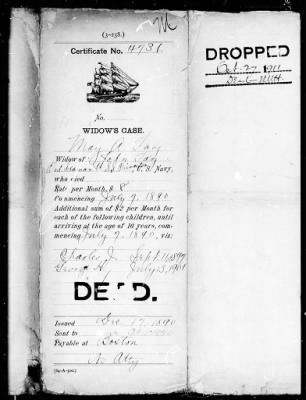 (3-258.)
Certificate No. 4731
No.
WIDOW'S CASE.
May A. Day
Widow of John Day
U. S. Navy,
who died
Rate per Month, $ 8
Commencing July 9, 1890
Additional sum of $2 per Month for
each of the following children, until
arriving at the age of 16 years, com-
mencing July 9, 1890, viz:
Charles J. Sept.
George H. July 3, 1901
DEAD.
Issued Dec 17, 1890
Sent to
Payable at Boston
No Atty
DROPPED
Oct. 27, 1911